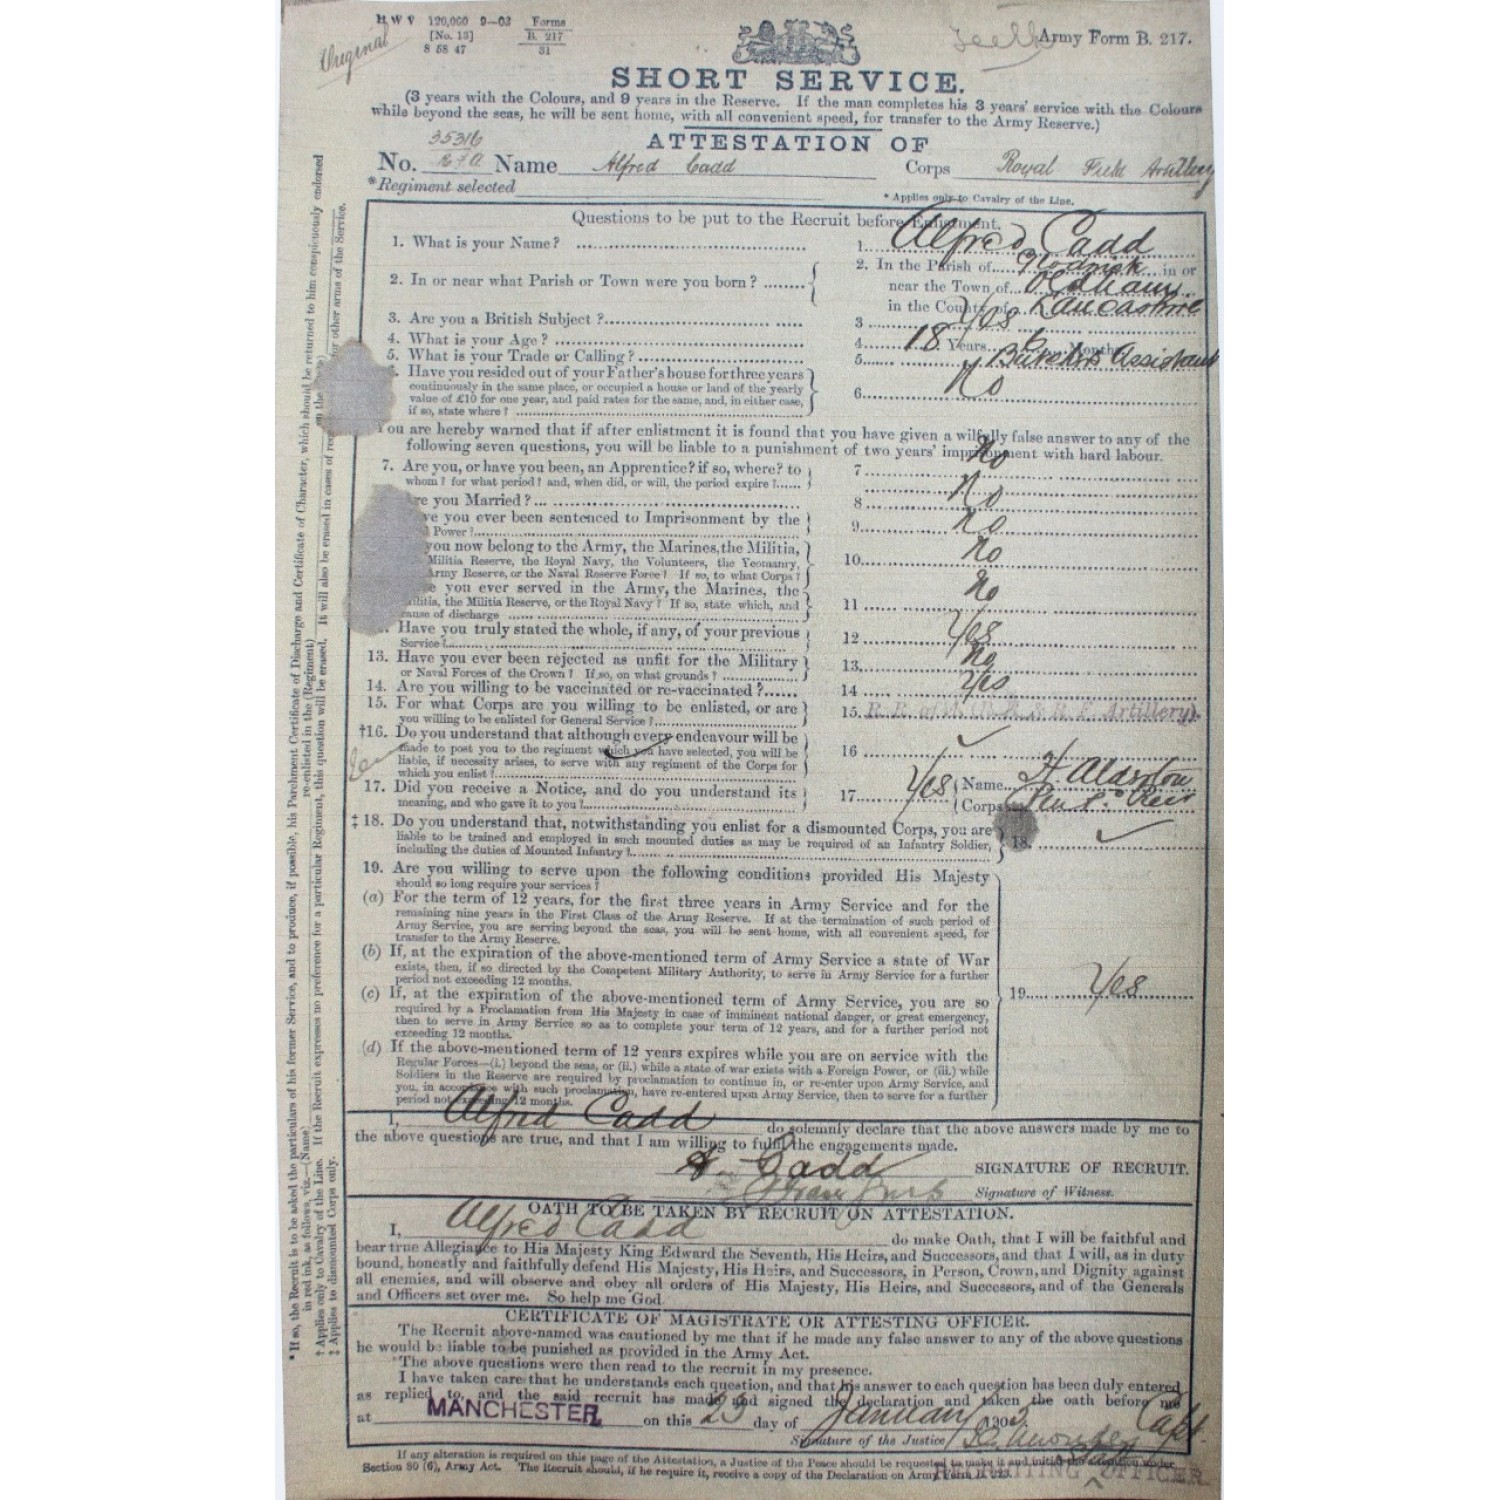 H W V 120,000 9—02 Forms
[No. 13] B. 217
8 58 47 31
Original
Army Form B. 217.
SHORT SERVICE.
(3 years with the Colours, and 9 years in the Reserve. If the man completes his 3 years' service with the Colours
while beyond the seas, he will be sent home, with all convenient speed, for transfer to the Army Reserve.)
ATTESTATION OF
35316
No. RFA Name Alfred Cadd Corps Royal Field Artillery
*Regiment selected
* Applies only to Cavalry of the Line.
Questions to be put to the Recruit before Enlistment.
1. What is your Name? 1. Alfred Cadd
2. In or near what Parish or Town were you born? 2. In the Parish of in or
near the Town of Oldham
in the County of Lancashire
3. Are you a British Subject? 3 Yes
4. What is your Age? 4. 18 Years 6 Months
5. What is your Trade or Calling? 5. Butchers Assistant
Have you resided out of your Father's house for three years
continuously in the same place, or occupied a house or land of the yearly
value of £10 for one year, and paid rates for the same, and, in either case,
if so, state where? 6. No
You are hereby warned that if after enlistment it is found that you have given a wilfully false answer to any of the
following seven questions, you will be liable to a punishment of two years' imprisonment with hard labour.
7. Are you, or have you been, an Apprentice? if so, where? to
whom? for what period? and, when did, or will, the period expire? 7 No
are you Married? 8 No
ve you ever been sentenced to Imprisonment by the
Power? 9. No
you now belong to the Army, the Marines, the Militia,
Militia Reserve, the Royal Navy, the Volunteers, the Yeomanry,
Army Reserve, or the Naval Reserve Force? If so, to what Corps? 10. No
e you ever served in the Army, the Marines, the
ilitia, the Militia Reserve, or the Royal Navy? If so, state which, and
cause of discharge 11 No
Have you truly stated the whole, if any, of your previous
Service? 12 Yes
13. Have you ever been rejected as unfit for the Military
or Naval Forces of the Crown? If so, on what grounds? 13. No
14. Are you willing to be vaccinated or re-vaccinated? 14 Yes
15. For what Corps are you willing to be enlisted, or are
you willing to be enlisted for General Service? 15. Artillery).
†16. Do you understand that although every endeavour will be
made to post you to the regiment which you have selected, you will be
liable, if necessity arises, to serve with any regiment of the Corps for
which you enlist? 16 ✓
17. Did you receive a Notice, and do you understand its
meaning, and who gave it to you? 17. Yes { Name
Corps
‡ 18. Do you understand that, notwithstanding you enlist for a dismounted Corps, you are
liable to be trained and employed in such mounted duties as may be required of an Infantry Soldier,
including the duties of Mounted Infantry? 18. ✓
19. Are you willing to serve upon the following conditions provided His Majesty
should so long require your services?
(a) For the term of 12 years, for the first three years in Army Service and for the
remaining nine years in the First Class of the Army Reserve. If at the termination of such period of
Army Service, you are serving beyond the seas, you will be sent home, with all convenient speed, for
transfer to the Army Reserve.
(b) If, at the expiration of the above-mentioned term of Army Service a state of War
exists, then, if so directed by the Competent Military Authority, to serve in Army Service for a further
period not exceeding 12 months.
(c) If, at the expiration of the above-mentioned term of Army Service, you are so
required by a Proclamation from His Majesty in case of imminent national danger, or great emergency,
then to serve in Army Service so as to complete your term of 12 years, and for a further period not
exceeding 12 months.
(d) If the above-mentioned term of 12 years expires while you are on service with the
Regular Forces—(i.) beyond the seas, or (ii.) while a state of war exists with a Foreign Power, or (iii.) while
Soldiers in the Reserve are required by proclamation to continue in, or re-enter upon Army Service, and
you, in accordance with such proclamation, have re-entered upon Army Service, then to serve for a further
period not exceeding 12 months.
19. Yes
I, Alfred Cadd do solemnly declare that the above answers made by me to
the above questions are true, and that I am willing to fulfil the engagements made.
A. Cadd SIGNATURE OF RECRUIT.
Signature of Witness.
OATH TO BE TAKEN BY RECRUIT ON ATTESTATION.
I, Alfred Cadd do make Oath, that I will be faithful and
bear true Allegiance to His Majesty King Edward the Seventh, His Heirs, and Successors, and that I will, as in duty
bound, honestly and faithfully defend His Majesty, His Heirs, and Successors, in Person, Crown, and Dignity against
all enemies, and will observe and obey all orders of His Majesty, His Heirs, and Successors, and of the Generals
and Officers set over me. So help me God.
CERTIFICATE OF MAGISTRATE OR ATTESTING OFFICER.
The Recruit above-named was cautioned by me that if he made any false answer to any of the above questions
he would be liable to be punished as provided in the Army Act.
The above questions were then read to the recruit in my presence.
I have taken care that he understands each question, and that his answer to each question has been duly entered
as replied to, and the said recruit has made and signed the declaration and taken the oath before me
at MANCHESTER on this 23 day of January 1905 Capt.
Signature of the Justice
RECRUITING OFFICER
If any alteration is required on this page of the Attestation, a Justice of the Peace should be requested to make it and initial under
Section 80 (6), Army Act. The Recruit should, if he require it, receive a copy of the Declaration on Army Form B. 223.
* If so, the Recruit is to be asked the particulars of his former Service, and to produce, if possible, his Parchment Certificate of Discharge and Certificate of Character, which should be returned to him conspicuously endorsed
in red ink, as follows, viz.—(Name) re-enlisted in the (Regiment) on the
† Applies only to Cavalry of the Line. If the Recruit expresses no preference for a particular Regiment, this question will be erased. It will also be erased in cases of for other arms of the Service.
‡ Applies to dismounted Corps only.